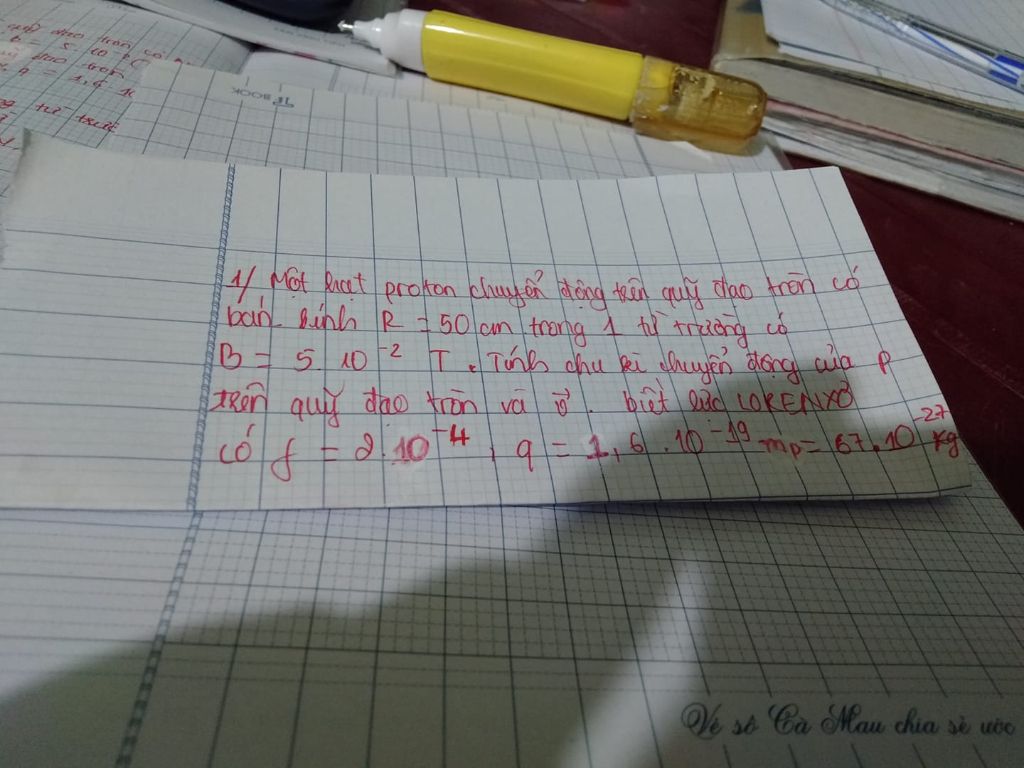 đạo tròn có
đạo tròn
q = 1,6 10
BOOK
1/ Một hạt proton chuyển động trên quỹ đạo tròn có
bán kính R = 50 cm trong 1 từ trường có
B = 5.10⁻² T. Tính chu kì chuyển động của p
trên quỹ đạo tròn và v⃗. biết lực LORENXƠ
có f = 2.10⁻⁴, q = 1,6.10⁻¹⁹ mp = 67.10⁻²⁷ kg
Vé số Cà Mau chia sẻ ước